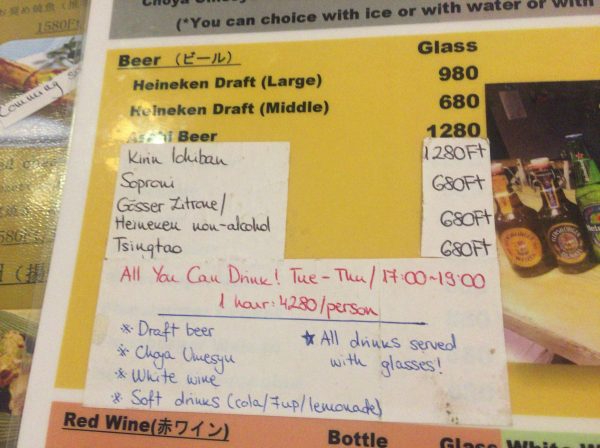 Choya Umesyu
お奨め焼魚
1580Ft
(*You can choice with ice or with water or with
Comming
Beer (ビール) Glass
Heineken Draft (Large) 980
Heineken Draft (Middle) 680
Asahi Beer 1280
Kirin Ichiban 1280Ft
Soproni 680Ft
Gösser Zitrone/
Heineken non-alcohol 680Ft
Tsingtao 680Ft
All You Can Drink! Tue-Thu/17:00~19:00
1 hour: 4280/person
※ Draft beer
※ Choya Umesyu
※ White wine
※ Soft drinks (cola/7up/lemonade)
★ All drinks served
with glasses!
Red Wine(赤ワイン) Bottle Glass White W